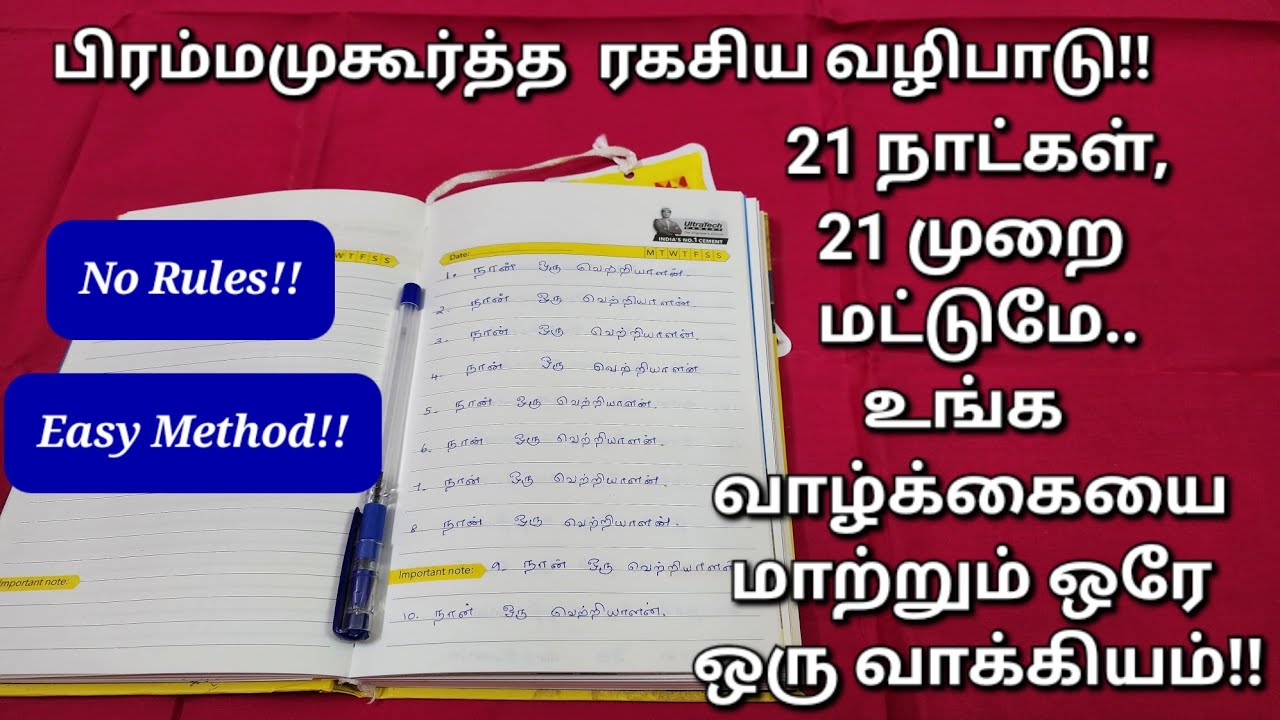 பிரம்மமுகூர்த்த ரகசிய வழிபாடு!!
21 நாட்கள்,
21 முறை
மட்டுமே..
உங்க
வாழ்க்கையை
மாற்றும் ஒரே
ஒரு வாக்கியம்!!
No Rules!!
Easy Method!!
W T F S S
Important note:
UltraTech
CEMENT
INDIA'S NO.1 CEMENT
Date:
M T W T F S S
1. நான் ஒரு வெற்றியாளன்.
2. நான் ஒரு வெற்றியாளன்
3. நான் ஒரு வெற்றியாளன்.
4. நான் ஒரு வெற்றியாளன்
5. நான் ஒரு வெற்றியாளன்.
6. நான் ஒரு வெற்றியாளன்.
7. நான் ஒரு வெற்றியாளன்.
8 நான் ஒரு வெற்றியாளன்.
Important note: 9. நான் ஒரு வெற்றியாளன்
10. நான் ஒரு வெற்றியாளன்.